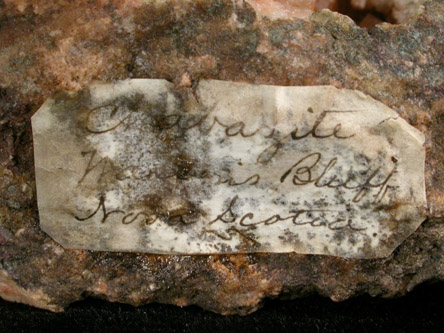 Chabazite
Bluff
Nova Scotia